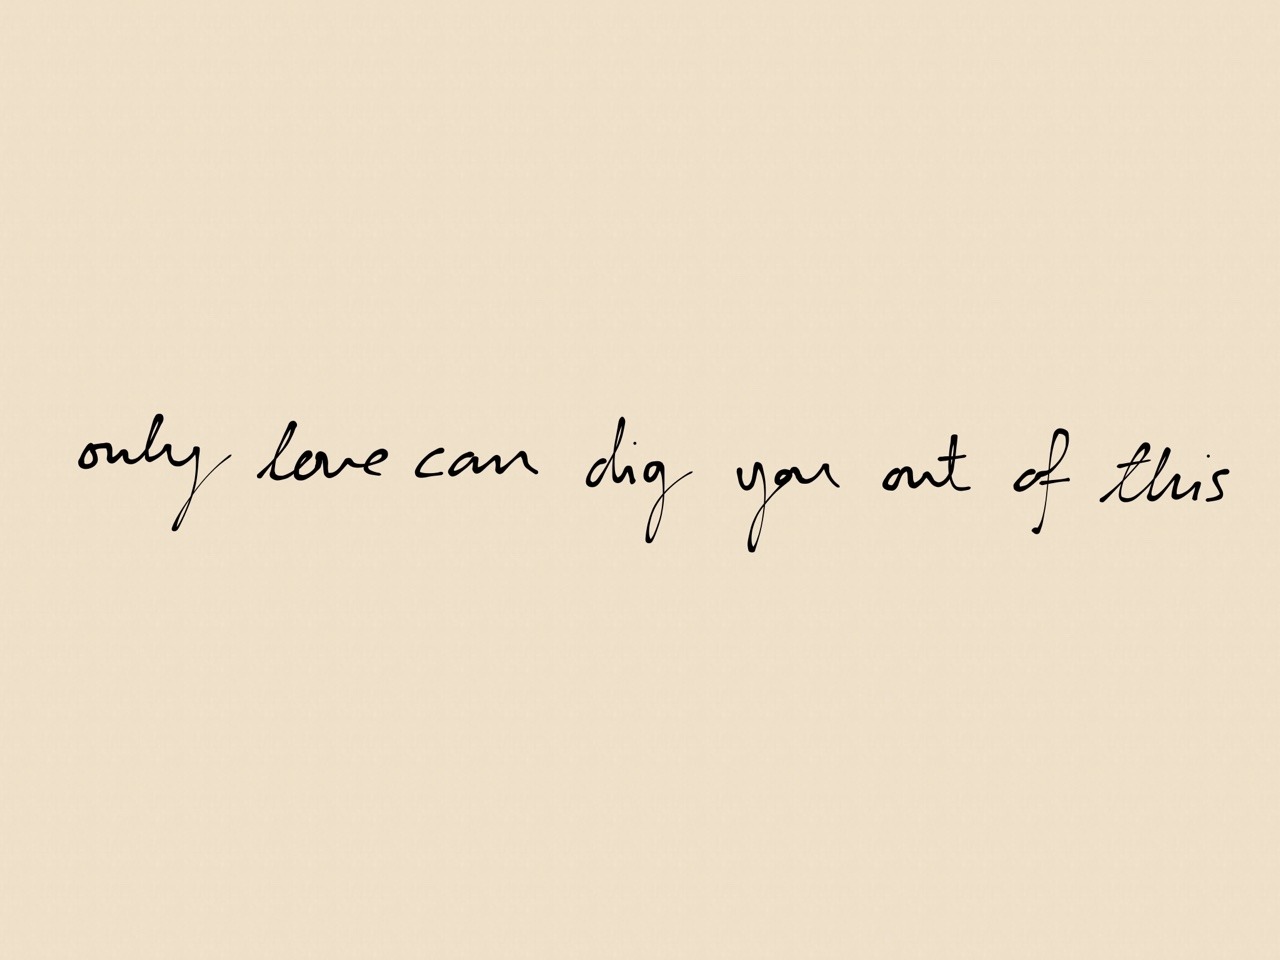 only love can dig you out of this